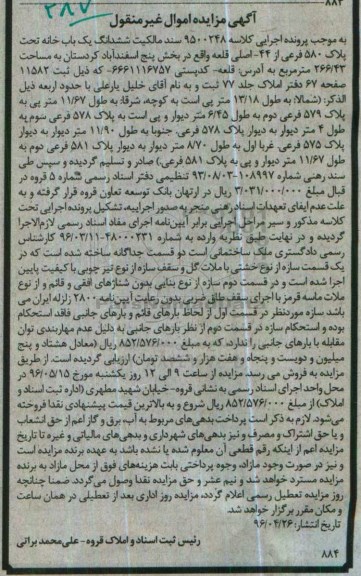 ۸۸۳
۳۸۷
آگهی مزایده اموال غیر منقول
به موجب پرونده اجرایی کلاسه ۹۵۰۰۲۴۸ سند مالکیت ششدانگ یک باب خانه تحت
پلاک ۵۸۰ فرعی از ۴۴- اصلی قلعه واقع در بخش پنج اسفندآباد کردستان به مساحت
۲۶۶/۴۳ مترمربع به آدرس: قلعه- کدپستی ۶۶۶۱۱۱۶۷۵۷- که ذیل ثبت ۱۱۵۸۲
صفحه ۶۷ دفتر املاک جلد ۷۷ ثبت و به نام آقای خلیل یارعلی با حدود اربعه ذیل
الذکر: (شمالا: به طول ۱۳/۱۸ متر پی است به کوچه، شرقا: به طول ۱۱/۶۷ متر پی به
پلاک ۵۷۹ فرعی دوم به طول ۶/۴۵ متر دیوار و پی است به پلاک ۵۷۸ فرعی سوم به
طول ۴ متر دیوار به دیوار پلاک ۵۷۸ فرعی، جنوبا به طول ۱۱/۹۰ متر دیوار به دیوار
پلاک ۵۷۵ فرعی، غربا اول به طول ۸/۷۰ متر دیوار به دیوار پلاک ۵۸۱ فرعی دوم به
طول ۱۱/۶۷ متر دیوار و پی به پلاک ۵۸۱ فرعی) صادر و تسلیم گردیده و سپس طی
سند رهنی شماره ۱۰۸۹۹۷-۹۳/۰۸/۰۳ تنظیمی دفتر اسناد رسمی شماره ۵ قروه در
قبال مبلغ ۳/۰۳۱/۰۰۰/۰۰۰ ریال در ارتهان بانک توسعه تعاون قروه قرار گرفته و به
علت عدم ایفای تعهدات اسناد رهنی منجر به صدور اجراییه، تشکیل پرونده اجرایی تحت
کلاسه مذکور و سیر مراحل اجرایی برابر آیین‌نامه اجرای مفاد اسناد رسمی لازم‌الاجرا
گردیده و در نهایت طبق نظریه وارده به شماره ۴۸۰۰۰۲۳۱-۹۶/۰۳/۱۱ کارشناس
رسمی دادگستری ملک ساختمانی است دو قسمت جداگانه ساخته شده است که در
یک قسمت سازه از نوع خشتی با ملات گل و سقف سازه از نوع تیر چوبی با کیفیت پایین
اجرا شده است و در قسمت دوم سازه از نوع بنایی بدون شناژهای افقی و قائم و از نوع
ملات ماسه قرمز با اجرای سقف طاق ضربی بدون رعایت آیین‌نامه ۲۸۰۰ زلزله ایران می
باشد سازه موردنظر در قسمت اول از لحاظ بارهای قائم و بارهای جانبی فاقد استحکام
بوده و استحکام سازه در قسمت دوم از نظر بارهای جانبی به دلیل عدم مهاربندی توان
مقابله با بارهای جانبی را ندارد، که به مبلغ ۸۵۲/۵۷۶/۰۰۰ ریال (معادل هشتاد و پنج
میلیون و دویست و پنجاه و هفت هزار و ششصد تومان) ارزیابی گردیده است. از طریق
مزایده به فروش می رسد. مزایده از ساعت ۹ الی ۱۲ روز یکشنبه مورخ ۹۶/۰۵/۱۵ در
محل واحد اجرای اسناد رسمی به نشانی قروه- خیابان شهید مطهری (اداره ثبت اسناد و
املاک) از مبلغ ۸۵۲/۵۷۶/۰۰۰ ریال شروع و به بالاترین قیمت پیشنهادی نقدا فروخته
می‌شود. لازم به ذکر است پرداخت بدهی‌های مربوط به آب، برق و گاز اعم از حق انشعاب
و یا حق اشتراک و مصرف و نیز بدهی‌های شهرداری و بدهی‌های مالیاتی و غیره تا تاریخ
مزایده اعم از اینکه رقم قطعی آن معلوم شده یا نشده باشد به عهده برنده مزایده است
و نیز در صورت وجود مازاد، وجوه پرداختی بابت هزینه‌های فوق از محل مازاد به برنده
مزایده مسترد خواهد شد و نیم عشر و حق مزایده نقدا وصول می‌گردد. ضمنا چنانچه
روز مزایده تعطیل رسمی اعلام گردد، مزایده روز اداری بعد از تعطیلی در همان ساعت
و مکان مقرر برگزار خواهد شد.
تاریخ انتشار: ۹۶/۰۴/۲۶
رئیس ثبت اسناد و املاک قروه - علی‌محمد براتی
۸۸۴